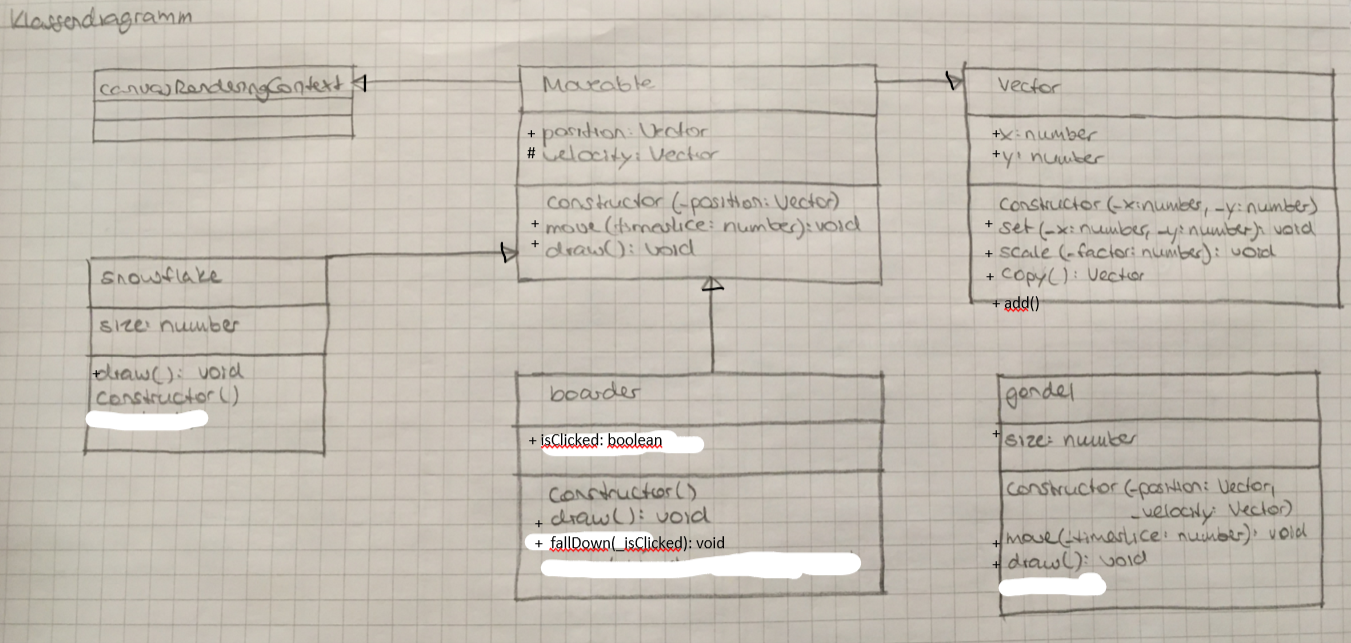 Klassendiagramm
canvasRenderingContext
Moveable
+ position: Vector
# velocity: Vector
constructor (_position: Vector)
+ move (_timeslice: number): void
+ draw(): void
Vector
+x: number
+y: number
constructor (_x: number, _y: number)
+ set (_x: number, _y: number): void
+ scale (_factor: number): void
+ copy(): Vector
+ add()
snowflake
size: number
+draw(): void
constructor()
boarder
+ isClicked: boolean
constructor()
+ draw(): void
+ fallDown(_isClicked): void
gondel
+ size: number
constructor (_position: Vector,
_velocity: Vector)
+ move(_timeslice: number): void
+ draw(): void